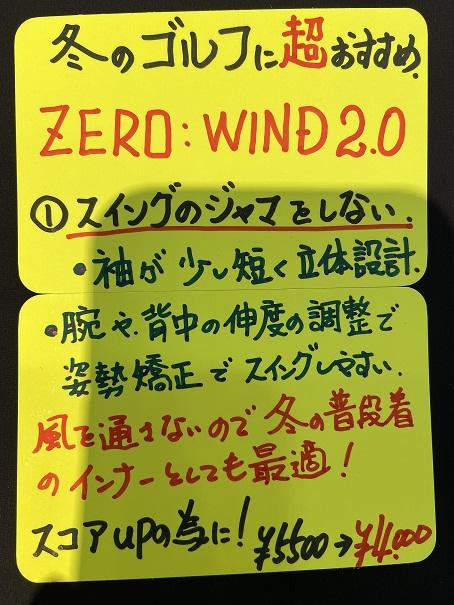 冬のゴルフに超おすすめ.
ZERO:WIND2.0
①スイングのジャマをしない.
・袖が少し短く立体設計.
・腕や背中の伸度の調整で
姿勢矯正でスイングしやすい.
風を通さないので冬の普段着
のインナーとしても最適!
スコアupの為に! ¥5500→¥4.000